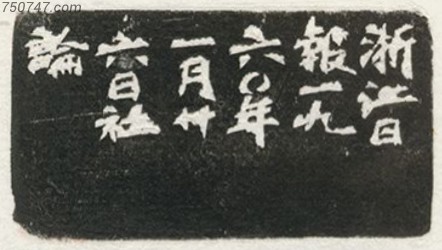 750747.com
浙江日
報一九
六〇年
一月廿
六日社
論